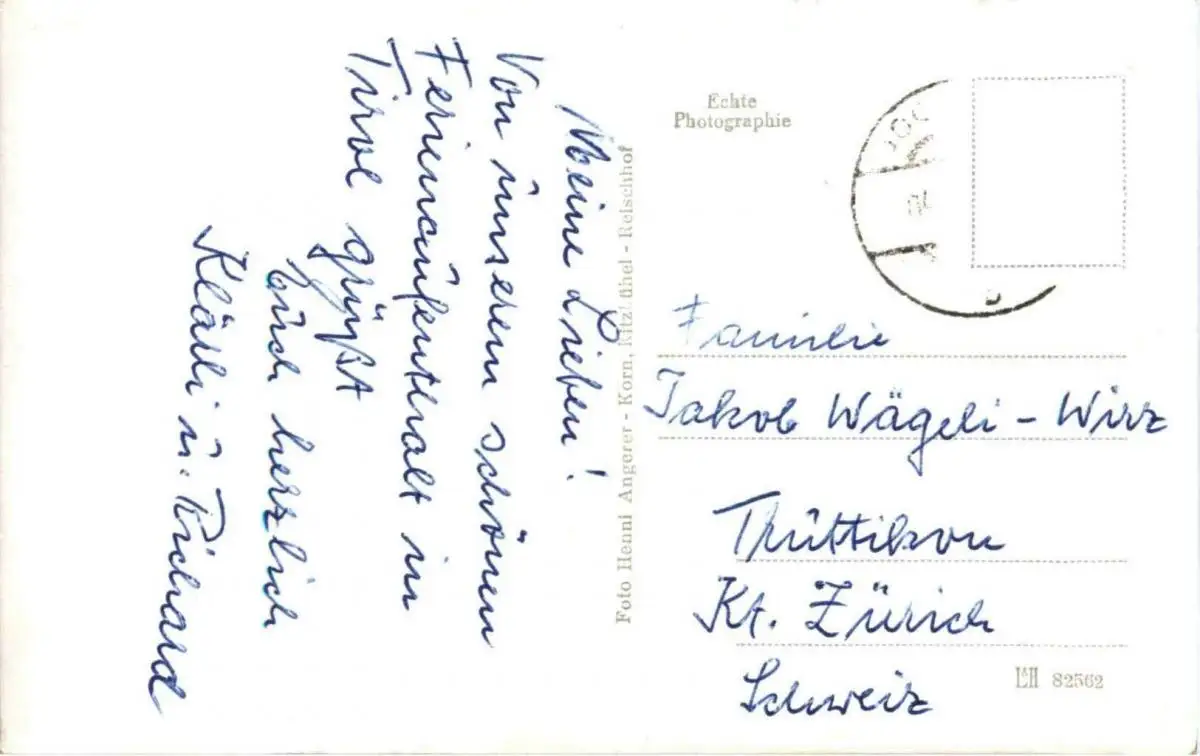 Meine Lieben!
Von unserem schönen
Ferienaufenthalt in
Tirol grüßt
Euch herzlich
Kläsli u. Richard
Foto Henni Angerer - Korn, Kitzbühel - Reischhof
Echte
Photographie
Familie
Jakob Wägeli - Wirz
Trüttikon
Kt. Zürich
Schweiz
L&H 82562